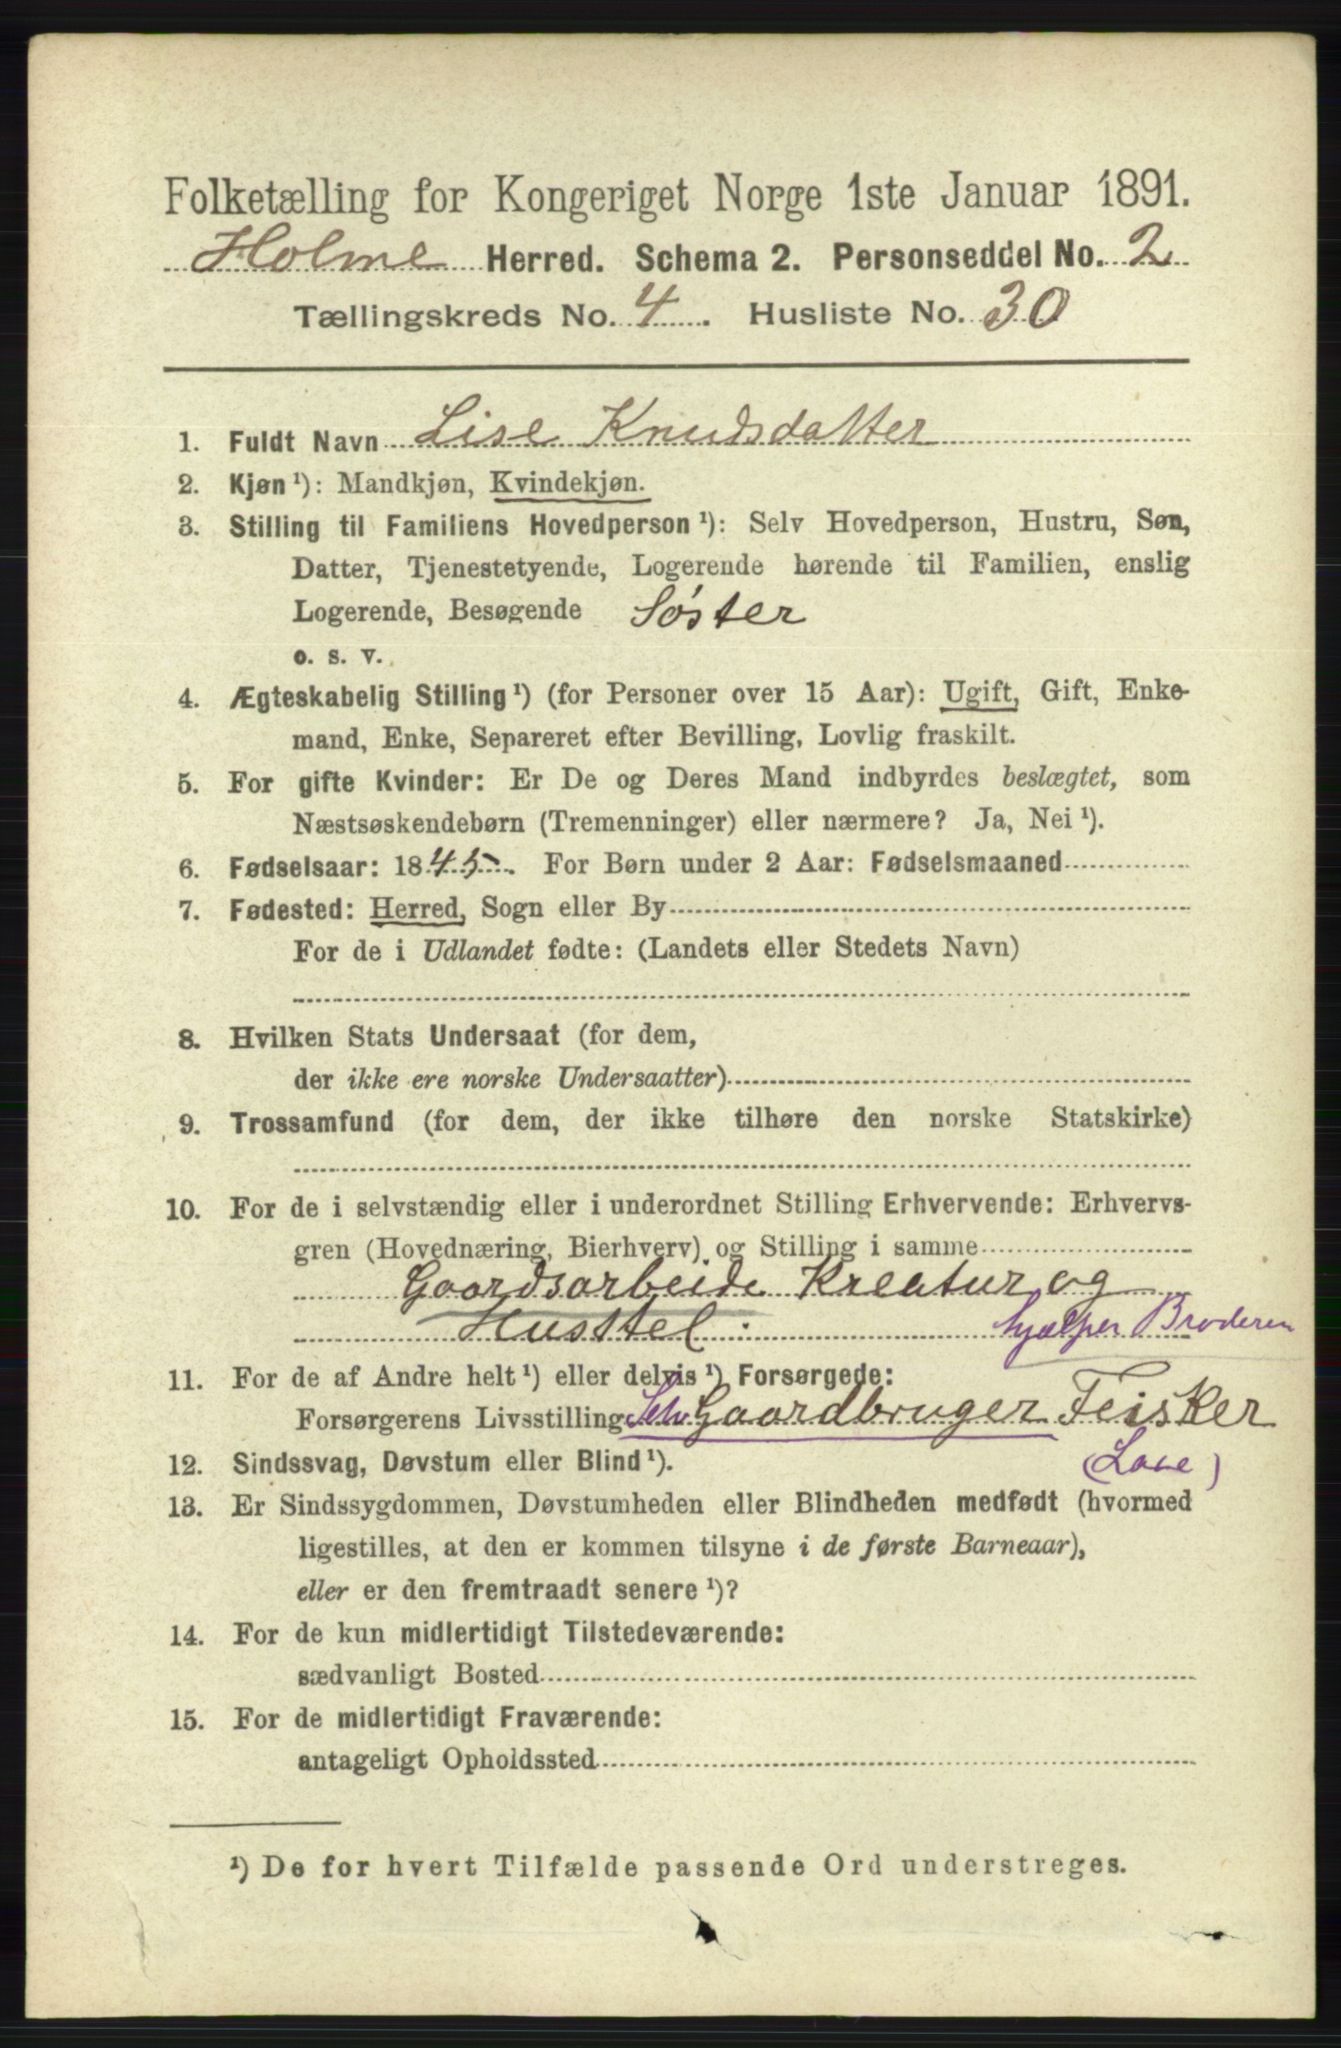 Folketælling for Kongeriget Norge 1ste Januar 1891.
Holme Herred. Schema 2. Personseddel No. 2
Tællingskreds No. 4. Husliste No. 30
1. Fuldt Navn Lise Knudsdatter
2. Kjøn ¹): Mandkjøn, Kvindekjøn.
3. Stilling til Familiens Hovedperson ¹): Selv Hovedperson, Hustru, Søn,
Datter, Tjenestetyende, Logerende hørende til Familien, enslig
Logerende, Besøgende Søster
o. s. v.
4. Ægteskabelig Stilling ¹) (for Personer over 15 Aar): Ugift, Gift, Enke-
mand, Enke, Separeret efter Bevilling, Lovlig fraskilt.
5. For gifte Kvinder: Er De og Deres Mand indbyrdes beslægtet, som
Næstsøskendebørn (Tremenninger) eller nærmere? Ja, Nei ¹).
6. Fødselsaar: 1845. For Børn under 2 Aar: Fødselsmaaned
7. Fødested: Herred, Sogn eller By
For de i Udlandet fødte: (Landets eller Stedets Navn)
8. Hvilken Stats Undersaat (for dem,
der ikke ere norske Undersaatter)
9. Trossamfund (for dem, der ikke tilhøre den norske Statskirke)
10. For de i selvstændig eller i underordnet Stilling Erhvervende: Erhvervs-
gren (Hovednæring, Bierhverv) og Stilling i samme
Gaardsarbeide Kreatur og
Husstel. hjælper Broderen
11. For de af Andre helt ¹) eller delvis ¹) Forsørgede:
Forsørgerens Livsstilling Selv Gaardbruger Feisker
12. Sindssvag, Døvstum eller Blind ¹).
13. Er Sindssygdommen, Døvstumheden eller Blindheden medfødt (hvormed
ligestilles, at den er kommen tilsyne i de første Barneaar),
eller er den fremtraadt senere ¹)?
14. For de kun midlertidigt Tilstedeværende:
sædvanligt Bosted
15. For de midlertidigt Fraværende:
antageligt Opholdssted
¹) De for hvert Tilfælde passende Ord understreges.